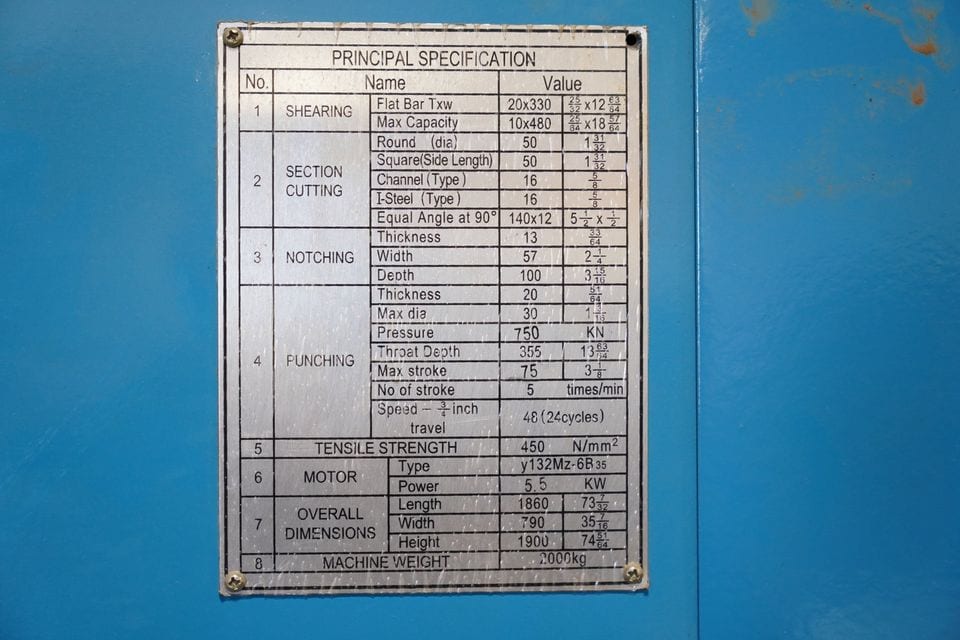 PRINCIPAL SPECIFICATION
No. Name Value
1 SHEARING Flat Bar Txw 20x330 25/32 x12 63/64
Max Capacity 10x480 25/64 x18 57/64
2 SECTION CUTTING Round (dia) 50 1 31/32
Square(Side Length) 50 1 31/32
Channel (Type) 16 5/8
I-Steel (Type) 16 5/8
Equal Angle at 90° 140x12 5 1/2 x 1/2
3 NOTCHING Thickness 13 33/64
Width 57 2 1/4
Depth 100 3 15/16
4 PUNCHING Thickness 20 51/64
Max dia 30 1
Pressure 750 KN
Throat Depth 355 13 63/64
Max stroke 75 3 1/8
No of stroke 5 times/min
Speed - 3/4 inch travel 48 (24cycles)
5 TENSILE STRENGTH 450 N/mm²
6 MOTOR Type y132Mz-6B35
Power 5.5 KW
7 OVERALL DIMENSIONS Length 1860 73 7/32
Width 790 35 7/16
Height 1900 74 51/64
8 MACHINE WEIGHT 2000kg